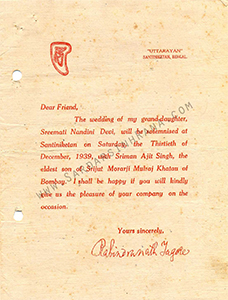 "UTTARAYAN"
SANTINIKETAN, BENGAL.
Dear Friend,
The wedding of my grand-daughter,
Sreemati Nandini Devi, will be solemnised
at Santiniketan on Saturday the Thirtieth
of December, 1939, with Sriman Ajit Singh, the
eldest son of Srijut Morarji Mulraj Khatau of
Bombay. I shall be happy if you will kindly
give us the pleasure of your company on the
occasion.
Yours sincerely,
Rabindranath Tagore